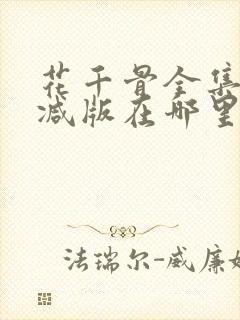 花千骨全集
减版在哪里
法瑞尔-威廉姆